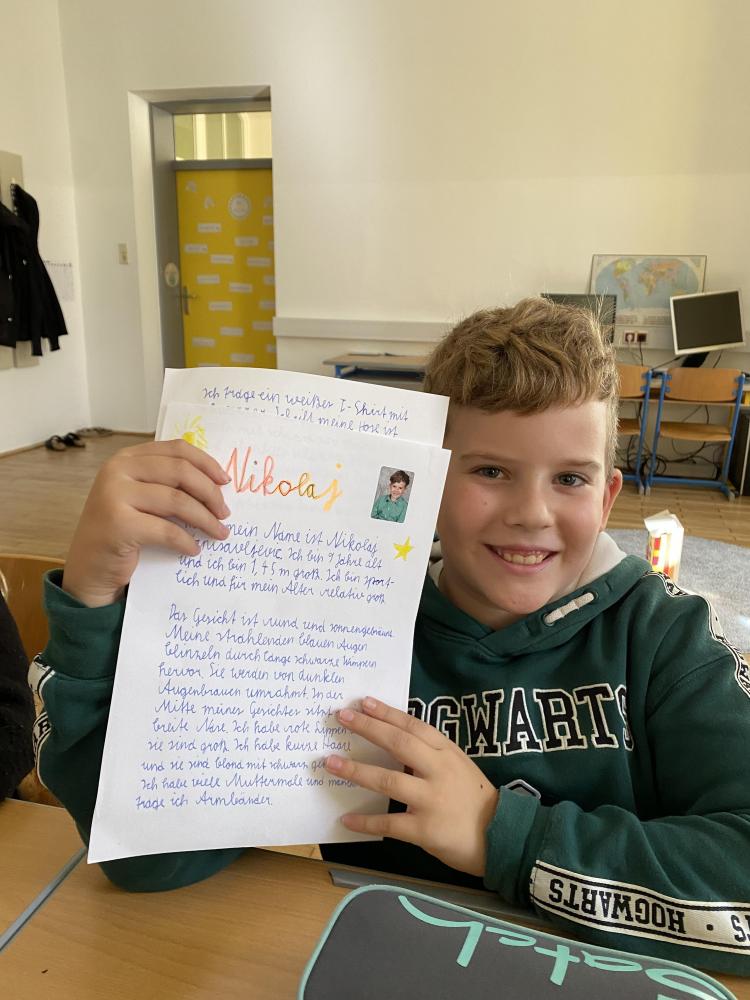 Ich trage ein weißes T-Shirt mit
meine Hose ist
Nikolaj
mein Name ist Nikolaj
Ich bin 9 Jahre alt
und ich bin 1,45 m groß. Ich bin sport-
lich und für mein Alter relativ groß.
Das Gesicht ist rund und sonnengebräunt.
Meine strahlenden blauen Augen
blinzeln durch lange schwarze Wimpern
hervor. Sie werden von dunklen
Augenbrauen umrahmt. In der
Mitte meines Gesichtes sitzt
breite Nase. Ich habe rote Lippen
sie sind groß. Ich habe kurze Haare
und sie sind blond mit schwarz
Ich habe viele Muttermale und
trage ich Armbänder.
OGWARTS
HOGWARTS
satch